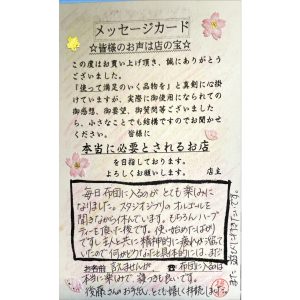 メッセージカード
☆皆様のお声は店の宝☆
この度はお買い上げ頂き、誠にありがとう
ございました。
『使って満足のいく品物を』と真剣に心掛
けていますが、実際に御使用になられての
御感想、御要望、御質問等ございました
ら、小さなことでも結構ですのでお聞かせ
ください。 皆様に
本当に必要とされるお店
を目指しております。
よろしくお願いします。 店主
毎日布団に入るのが とても楽しみに
なりました。スタジオジブリの オルゴールを
聞きながら休んでいます。もちろん ハーブ
ティーを頂いた後です。使い始めたばかり
ですし、まんと共に精神的に疲れが溜って
いたので 何がどう などと具体的には、まだ
お名前 言えませんが、 布団に入るのは
本当に楽しみで 寝つきも良いです。
後藤さんのお手紙、とても嬉しく拝読しました。